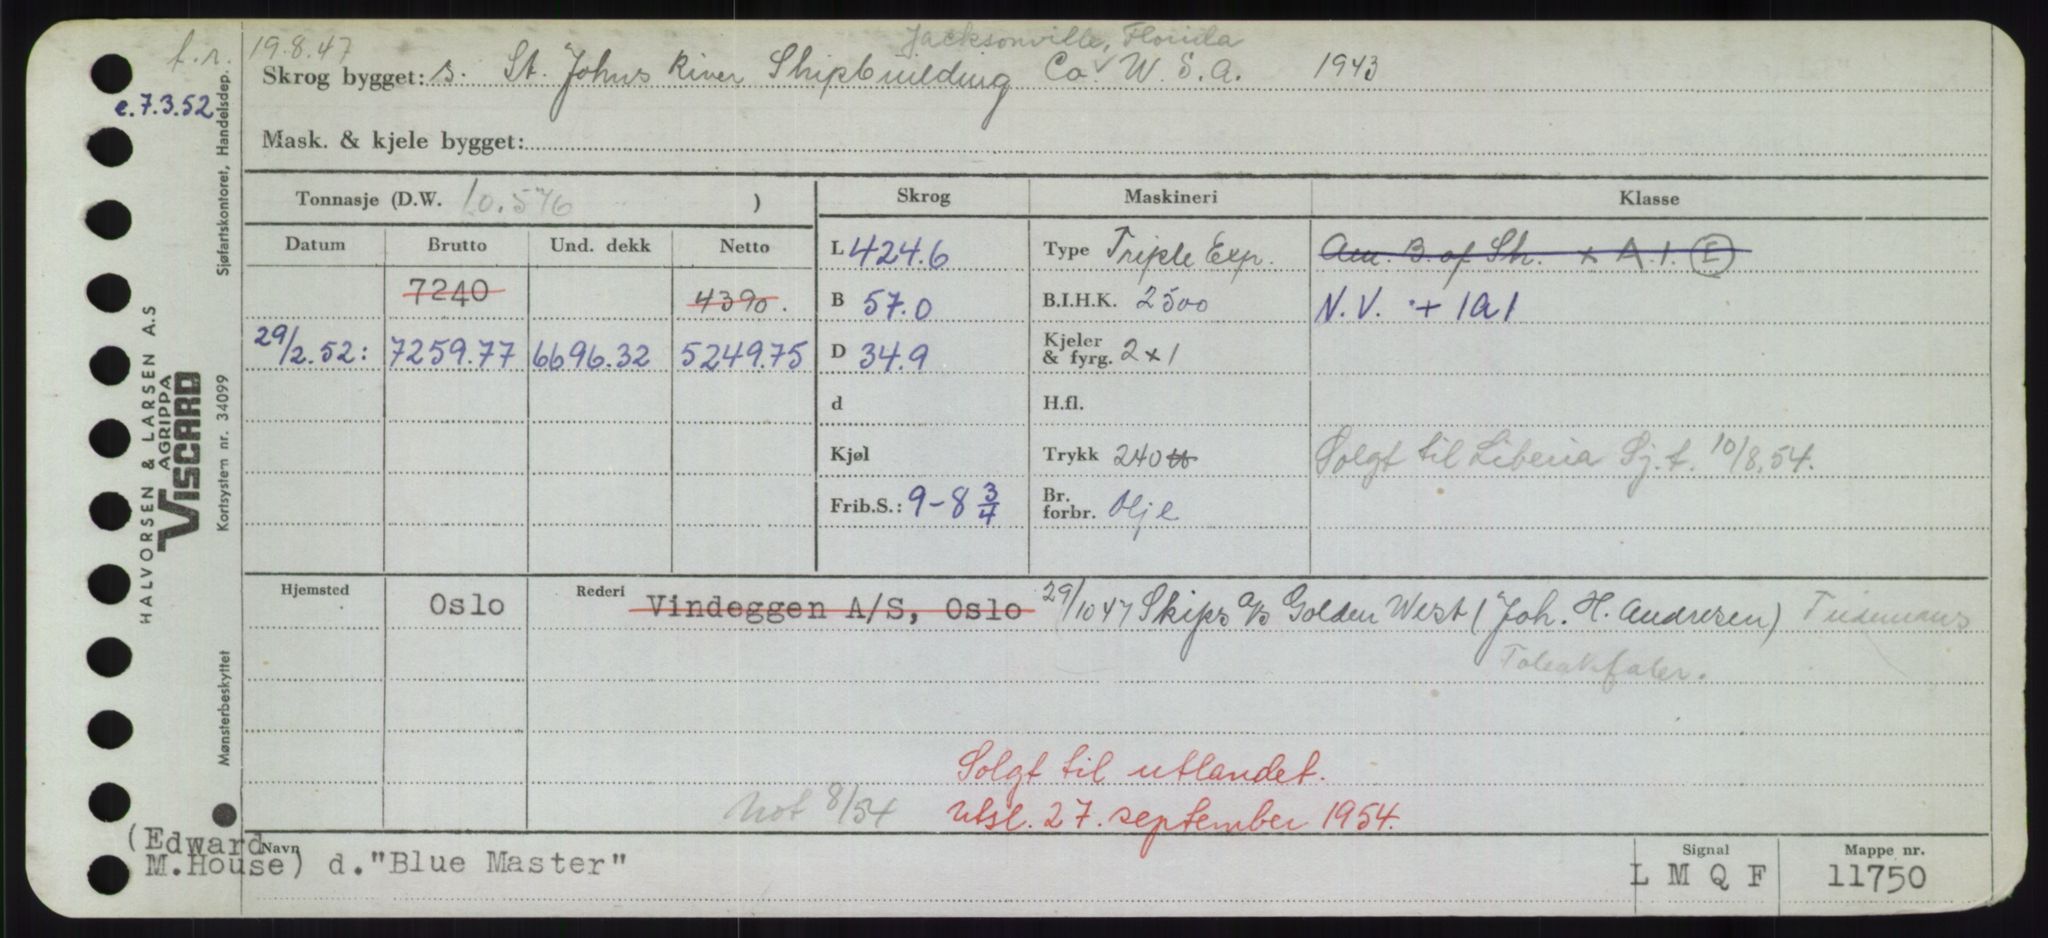 f.r. 19.8.47
Jacksonville, Florida
Skrog bygget: s. St. Johns River Shipbuilding Co. U.S.A. 1943
e.7.3.52
Mask. & kjele bygget:
Tonnasje (D.W. 10.576 )
Skrog Maskineri Klasse
Datum Brutto Und. dekk Netto
L 424.6 Type Triple Exp. Am. B. of Sh. + A.1. (E)
7240 4390.
B 57.0 B.I.H.K. 2500 N.V. + 1A1
29/2.52: 7259.77 6696.32 5249.75
D 34.9 Kjeler & fyrg. 2x1
d H.fl.
Kjøl Trykk 240 Solgt til Liberia Sj.f. 10/8.54.
Frib.S.: 9-8 3/4 Br. forbr. Olje
Hjemsted Oslo Rederi Vindeggen A/S, Oslo 29/10 47 Skips a/s Golden West (Joh. H. Andresen) Tiedemanns
Solgt til utlandet.
Not 8/54 utsl. 27. september 1954.
(Edward M.House) Navn d."Blue Master"
Signal L M Q F
Mappe nr. 11750
HALVORSEN & LARSEN A.S
AGRIPPA
VISCARD
Sjøfartskontoret, Handelsdep.
Kortsystem nr. 34099
Mønsterbeskyttet